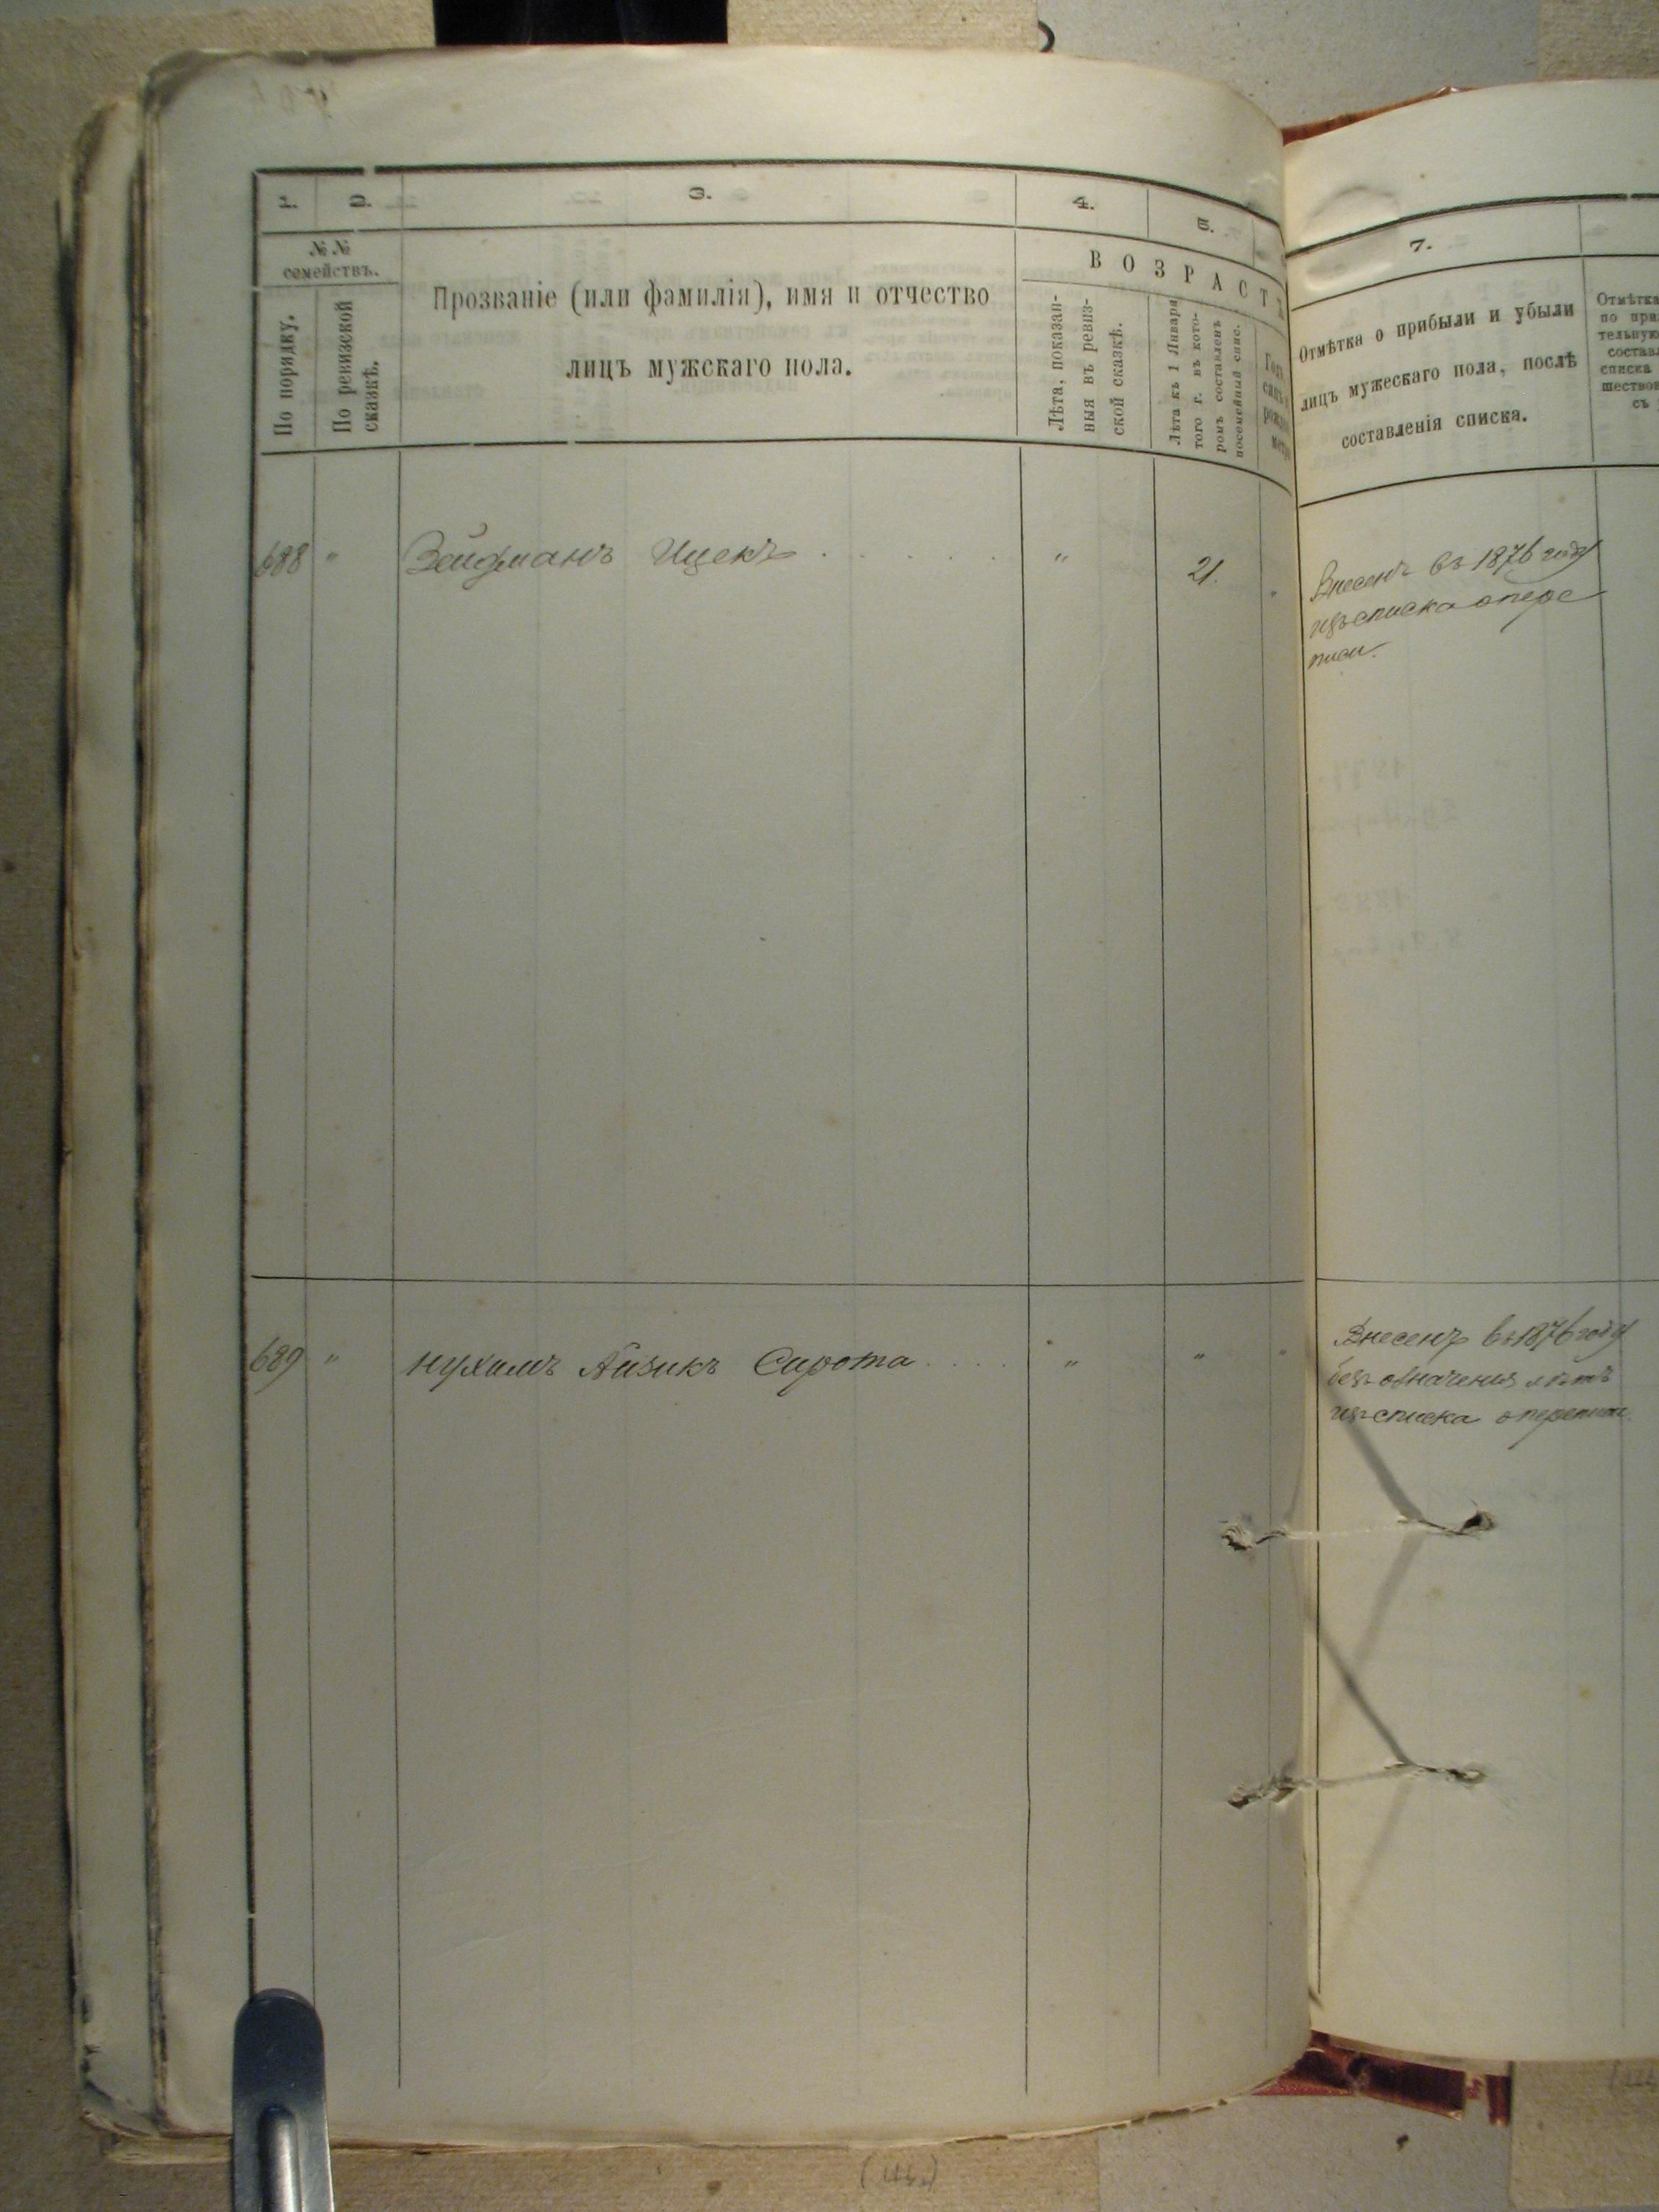 1.
2.
3.
4.
5.
7.
№ №
семействъ.
По порядку.
По ревизской
сказкѣ.
Прозваніе (или фамилія), имя и отчество
лицъ мужскаго пола.
ВОЗРАСТЪ
Лѣта, показан-
ныя въ ревиз-
ской сказкѣ.
Лѣта къ 1 Января
того г. въ кото-
ромъ составленъ
посемейный спис.
Отмѣтка о прибыли и убыли
лицъ мужескаго пола, послѣ
составленія списка.
Отмѣтка
по при
тельную
состав
списка
шество
съ
688 " Зейдманъ Ицекъ . . . . . " 21. "
Внесенъ въ 1876 году
изъ списка о пере
писи.
689 " Нухимъ Айзикъ Сирота . . . . " " "
Внесенъ въ 1876 году
безъ означенія лѣтъ
изъ списка о переписи.